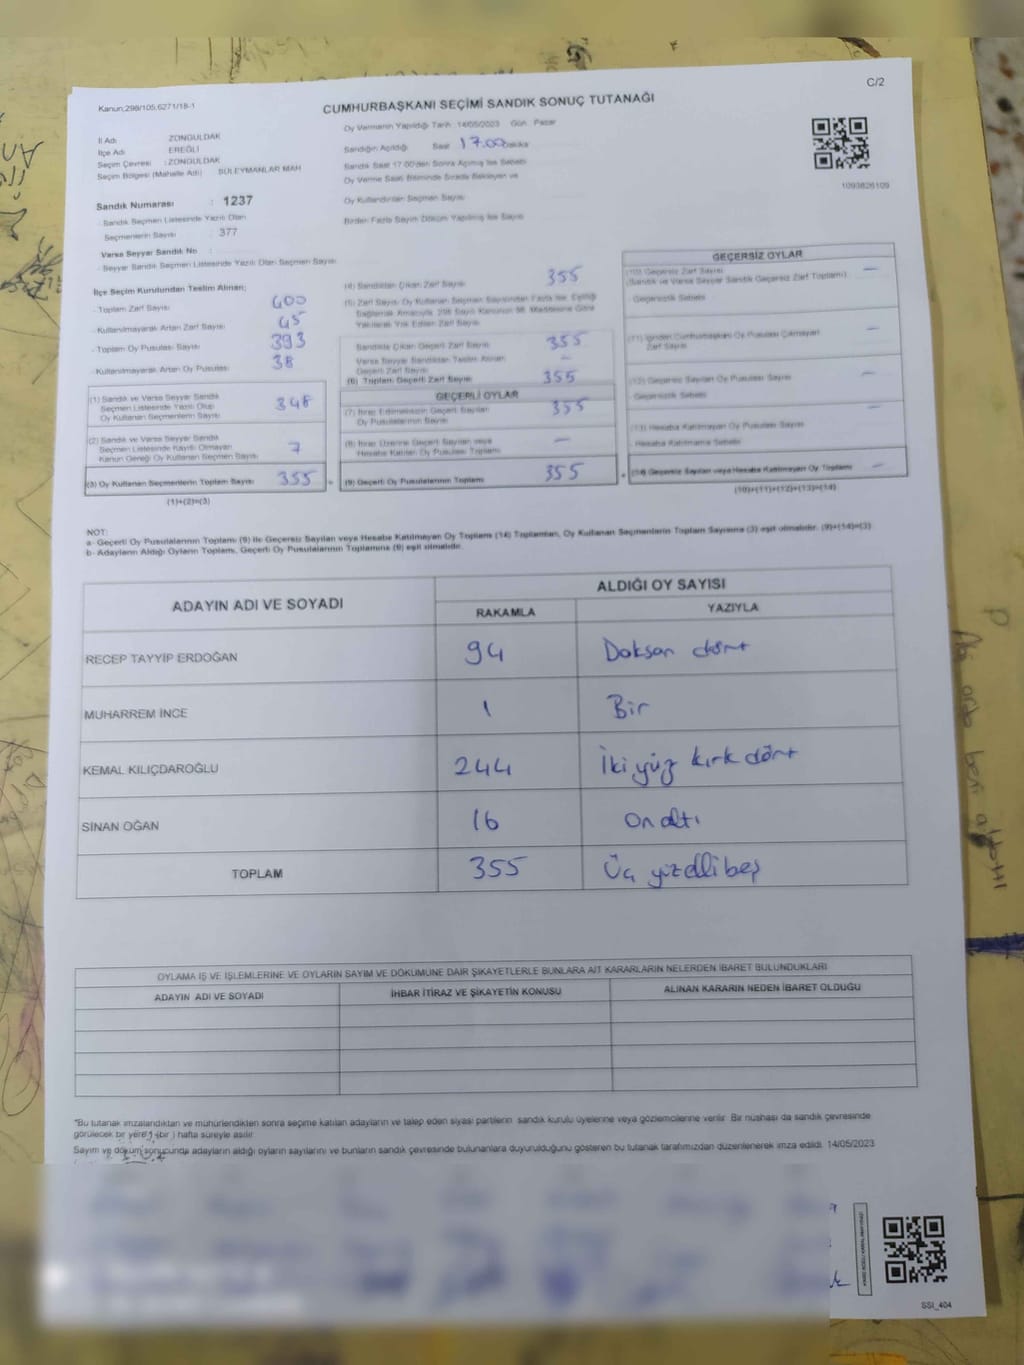 C/2
Kanun:298/105,6271/18-1
CUMHURBAŞKANI SEÇİMİ SANDIK SONUÇ TUTANAĞI
İl Adı ZONGULDAK
İlçe Adı EREĞLİ
Seçim Çevresi : ZONGULDAK
Seçim Bölgesi (Mahalle Adı) SÜLEYMANLAR MAH
Sandık Numarası : 1237
- Sandık Seçmen Listesinde Yazılı Olan
Seçmenlerin Sayısı : 377
Varsa Seyyar Sandık No :
- Seyyar Sandık Seçmen Listesinde Yazılı Olan Seçmen Sayısı
Oy Vermenin Yapıldığı Tarih :14/05/2023 Gün : Pazar
Sandığın Açıldığı Saat 17.00 Dakika
Sandık Saat 17:00'den Sonra Açılmış İse Sebebi
Oy Verme Saati Bitiminde Sırada Bekleyen ve
Oy Kullandırılan Seçmen Sayısı
Birden Fazla Sayım Döküm Yapılmış İse Sayısı
1093826109
İlçe Seçim Kurulundan Teslim Alınan;
- Toplam Zarf Sayısı 400
- Kullanılmayarak Artan Zarf Sayısı 45
- Toplam Oy Pusulası Sayısı 393
- Kullanılmayarak Artan Oy Pusulası 38
(1) Sandık ve Varsa Seyyar Sandık
Seçmen Listesinde Yazılı Olup
Oy Kullanan Seçmenlerin Sayısı 348
(2) Sandık ve Varsa Seyyar Sandık
Seçmen Listesinde Kayıtlı Olmayan
Kanun Gereği Oy Kullanan Seçmen Sayısı 7
(3) Oy Kullanan Seçmenlerin Toplam Sayısı 355
(1)+(2)=(3)
(4) Sandıktan Çıkan Zarf Sayısı 355
(5) Zarf Sayısı Oy Kullanan Seçmen Sayısından Fazla İse, Eşitliği
Sağlamak Amacıyla, 298 Sayılı Kanunun 98. Maddesine Göre
Yakılarak Yok Edilen Zarf Sayısı
Sandıkta Çıkan Geçerli Zarf Sayısı 355
Varsa Seyyar Sandıktan Teslim Alınan
Geçerli Zarf Sayısı –
(6) Toplam Geçerli Zarf Sayısı 355
GEÇERLİ OYLAR
(7) İtiraz Edilmeksizin Geçerli Sayılan
Oy Pusulalarının Sayısı 355
(8) İtiraz Üzerine Geçerli Sayılan veya
Hesaba Katılan Oy Pusulası Toplamı –
(9) Geçerli Oy Pusulalarının Toplamı 355
GEÇERSİZ OYLAR
(10) Geçersiz Zarf Sayısı –
(Sandık ve Varsa Seyyar Sandık Geçersiz Zarf Toplamı)
- Geçersizlik Sebebi
(11) İçinden Cumhurbaşkanı Oy Pusulası Çıkmayan –
Zarf Sayısı
(12) Geçersiz Sayılan Oy Pusulası Sayısı –
- Geçersizlik Sebebi
–
(13) Hesaba Katılmayan Oy Pusulası Sayısı
- Hesaba Katılmama Sebebi
(14) Geçersiz Sayılan veya Hesaba Katılmayan Oy Toplamı –
(10)+(11)+(12)+(13)=(14)
NOT:
a- Geçerli Oy Pusulalarının Toplamı (9) ile Geçersiz Sayılan veya Hesaba Katılmayan Oy Toplamı (14) Toplamları, Oy Kullanan Seçmenlerin Toplam Sayısına (3) eşit olmalıdır. (9)+(14)=(3)
b- Adayların Aldığı Oyların Toplamı, Geçerli Oy Pusulalarının Toplamına (9) eşit olmalıdır.
ADAYIN ADI VE SOYADI
ALDIĞI OY SAYISI
RAKAMLA YAZIYLA
RECEP TAYYİP ERDOĞAN 94 Doksan dört
MUHARREM İNCE 1 Bir
KEMAL KILIÇDAROĞLU 244 İki yüz kırk dört
SİNAN OĞAN 16 On altı
TOPLAM 355 Üç yüz elli beş
OYLAMA İŞ VE İŞLEMLERİNE VE OYLARIN SAYIM VE DÖKÜMÜNE DAİR ŞİKAYETLERLE BUNLARA AİT KARARLARIN NELERDEN İBARET BULUNDUKLARI
ADAYIN ADI VE SOYADI İHBAR İTİRAZ VE ŞİKAYETİN KONUSU ALINAN KARARIN NEDEN İBARET OLDUĞU
*Bu tutanak imzalandıktan ve mühürlendikten sonra seçime katılan adayların ve talep eden siyasi partilerin sandık kurulu üyelerine veya gözlemcilerine verilir. Bir nüshası da sandık çevresinde
görülecek bir yere 1 (bir ) hafta süreyle asılır.
Sayım ve döküm sonucunda adayların aldığı oyların sayılarını ve bunların sandık çevresinde bulunanlara duyurulduğunu gösteren bu tutanak tarafımızdan düzenlenerek imza edildi. 14/05/2023
SSI_404